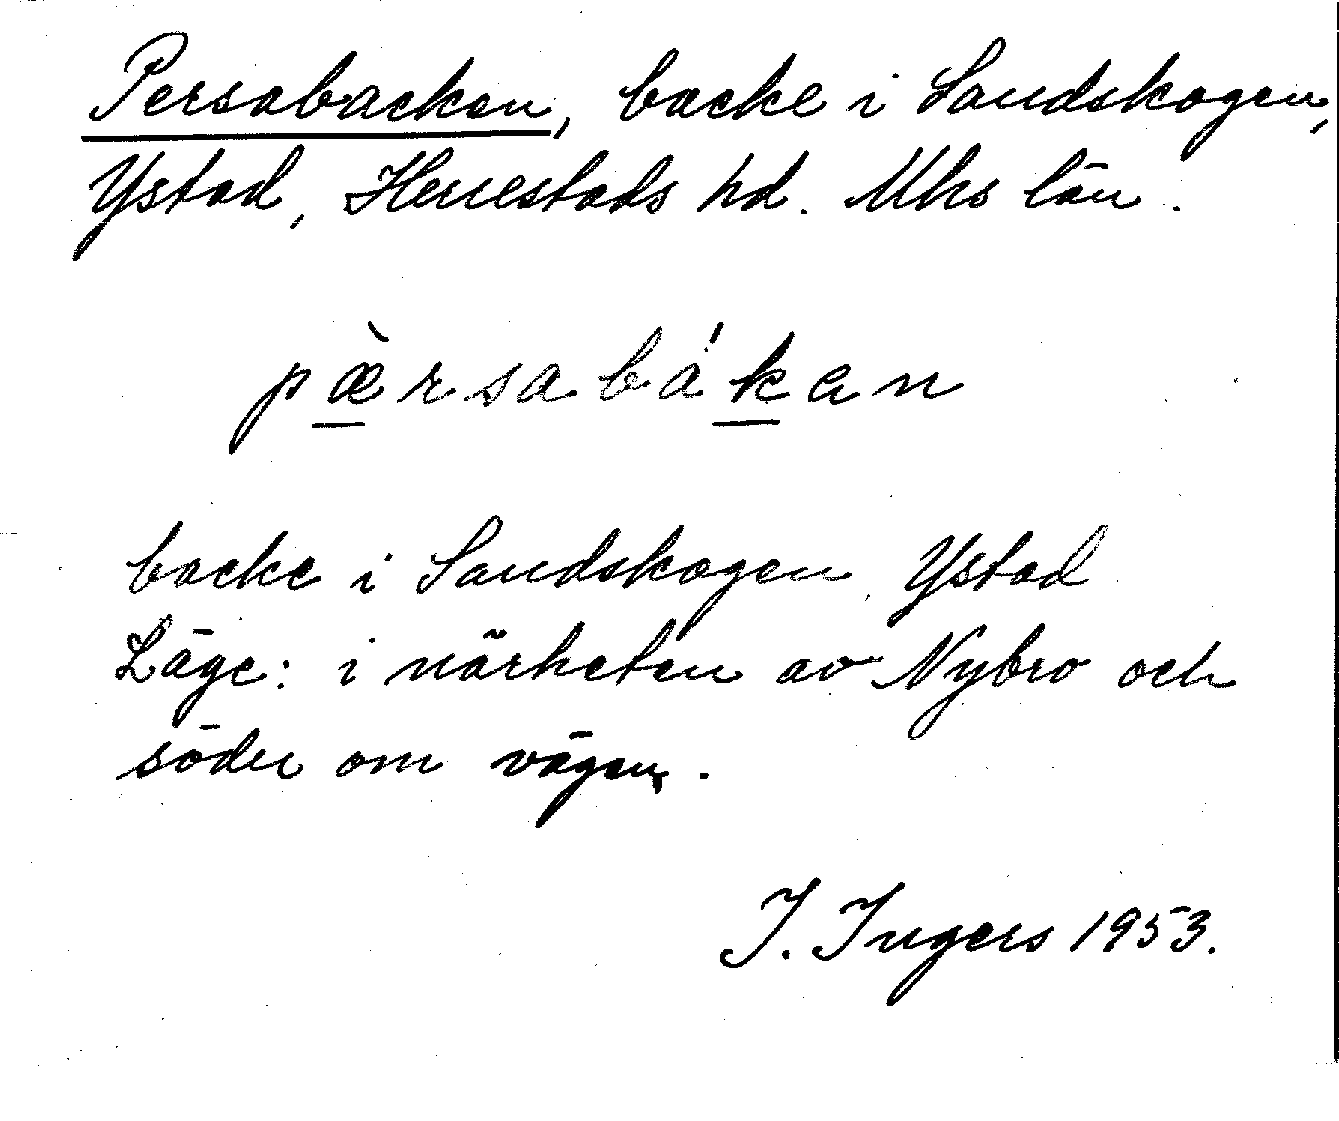 Persabacken, backe i Sandskogen,
Ystad, Herrestads hd. Mhs län.
pæ̀rsabákan
backe i Sandskogen, Ystad
Läge: i närheten av Nybro och
söder om vägen.
I. Ingers 1953.